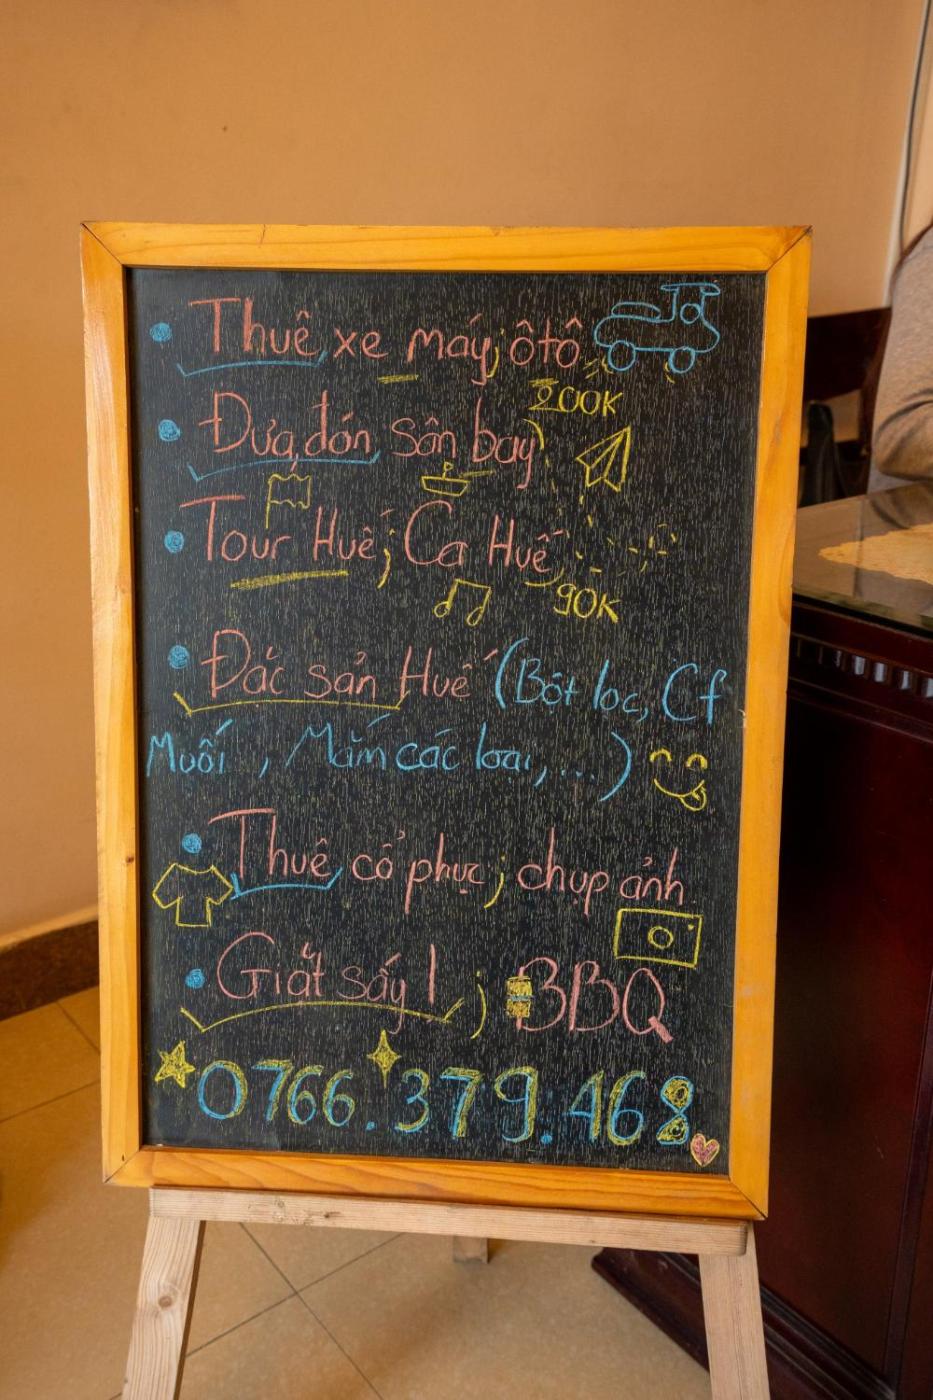 Thuê xe máy; ôtô
200K
Đưa, đón sân bay
Tour Huế; Ca Huế
90K
Đắc sản Huế (Bột lọc, Cf
Muối, Mắm các loại, ...)
Thuê cổ phục; chụp ảnh
Giặt sấy ; BBQ
0766.379.468